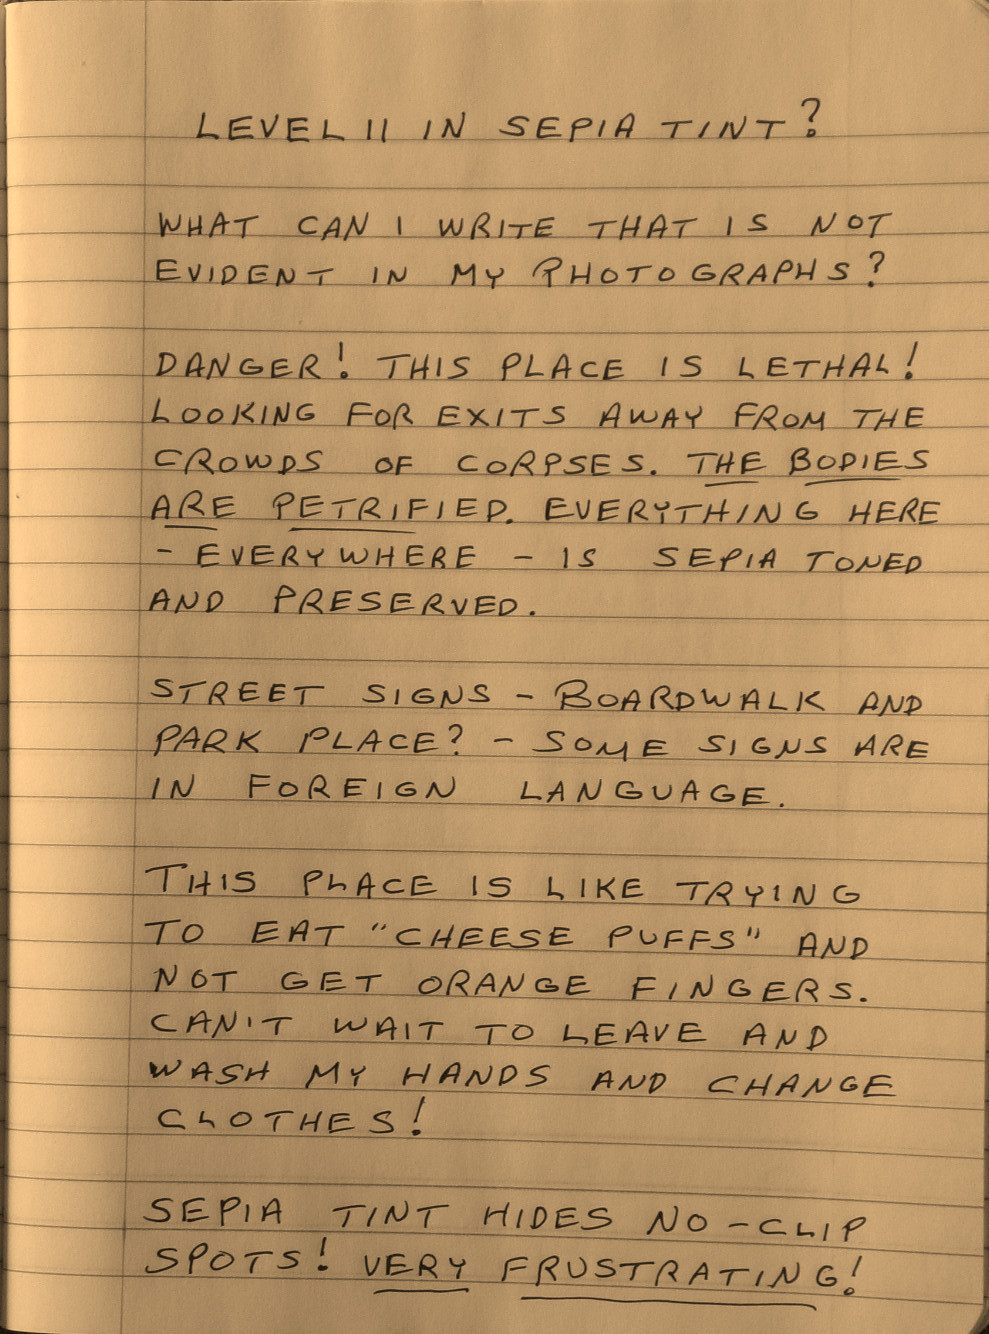 LEVEL 11 IN SEPIA TINT?
WHAT CAN I WRITE THAT IS NOT
EVIDENT IN MY PHOTOGRAPHS?
DANGER! THIS PLACE IS LETHAL!
LOOKING FOR EXITS AWAY FROM THE
CROWDS OF CORPSES. THE BODIES
ARE PETRIFIED. EVERYTHING HERE
- EVERYWHERE - IS SEPIA TONED
AND PRESERVED.
STREET SIGNS - BOARDWALK AND
PARK PLACE? - SOME SIGNS ARE
IN FOREIGN LANGUAGE.
THIS PLACE IS LIKE TRYING
TO EAT "CHEESE PUFFS" AND
NOT GET ORANGE FINGERS.
CAN'T WAIT TO LEAVE AND
WASH MY HANDS AND CHANGE
CLOTHES!
SEPIA TINT HIDES NO-CLIP
SPOTS! VERY FRUSTRATING!